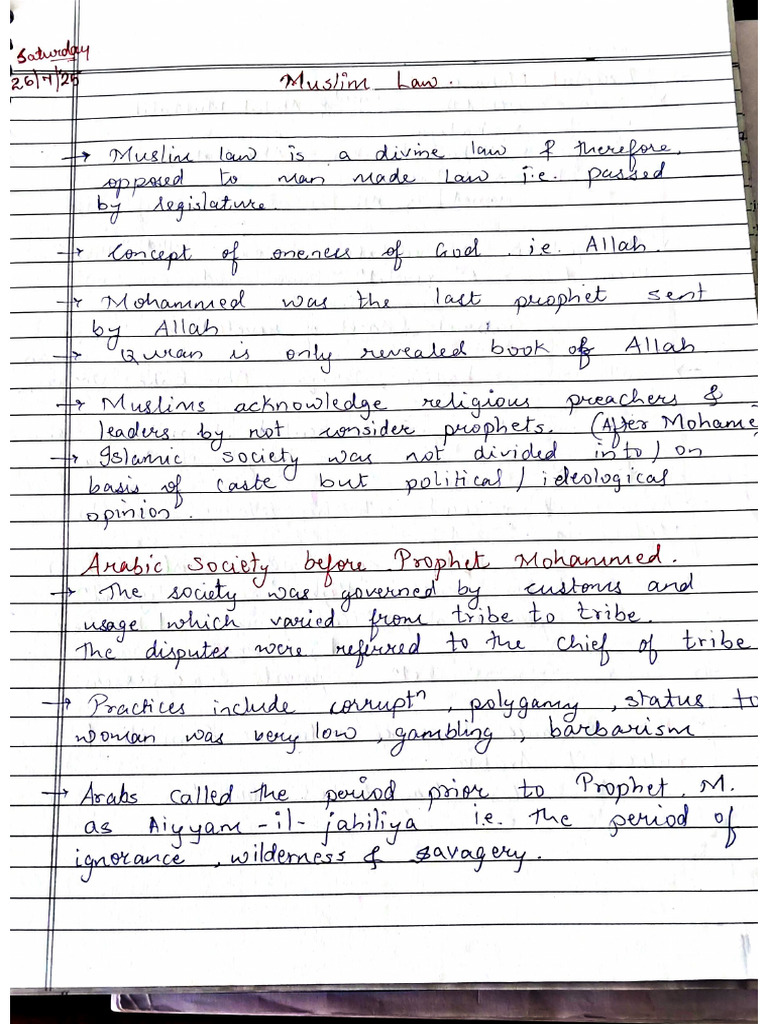 Saturday
26/7/25
Muslim Law.
→ Muslim law is a divine law & therefore,
opposed to man made law i.e. passed
by legislature.
→ Concept of oneness of God i.e. Allah.
→ Mohammed was the last prophet sent
by Allah
→ Quran is only revealed book of Allah
→ Muslims acknowledge religious preachers &
leaders by not consider prophets. (After Mohame
→ Islamic society was not divided into / on
basis of caste but political / ideological
opinion.
Arabic Society before Prophet Mohammed.
→ The society was governed by customs and
usage which varied from tribe to tribe.
The disputes were referred to the chief of tribe
→ Practices include corruptⁿ, polygamy, status to
woman was very low, gambling, barbarism
→ Arabs called the period prior to Prophet M.
as Aiyyam-il-jahiliya i.e. the period of
ignorance, wilderness & savagery.